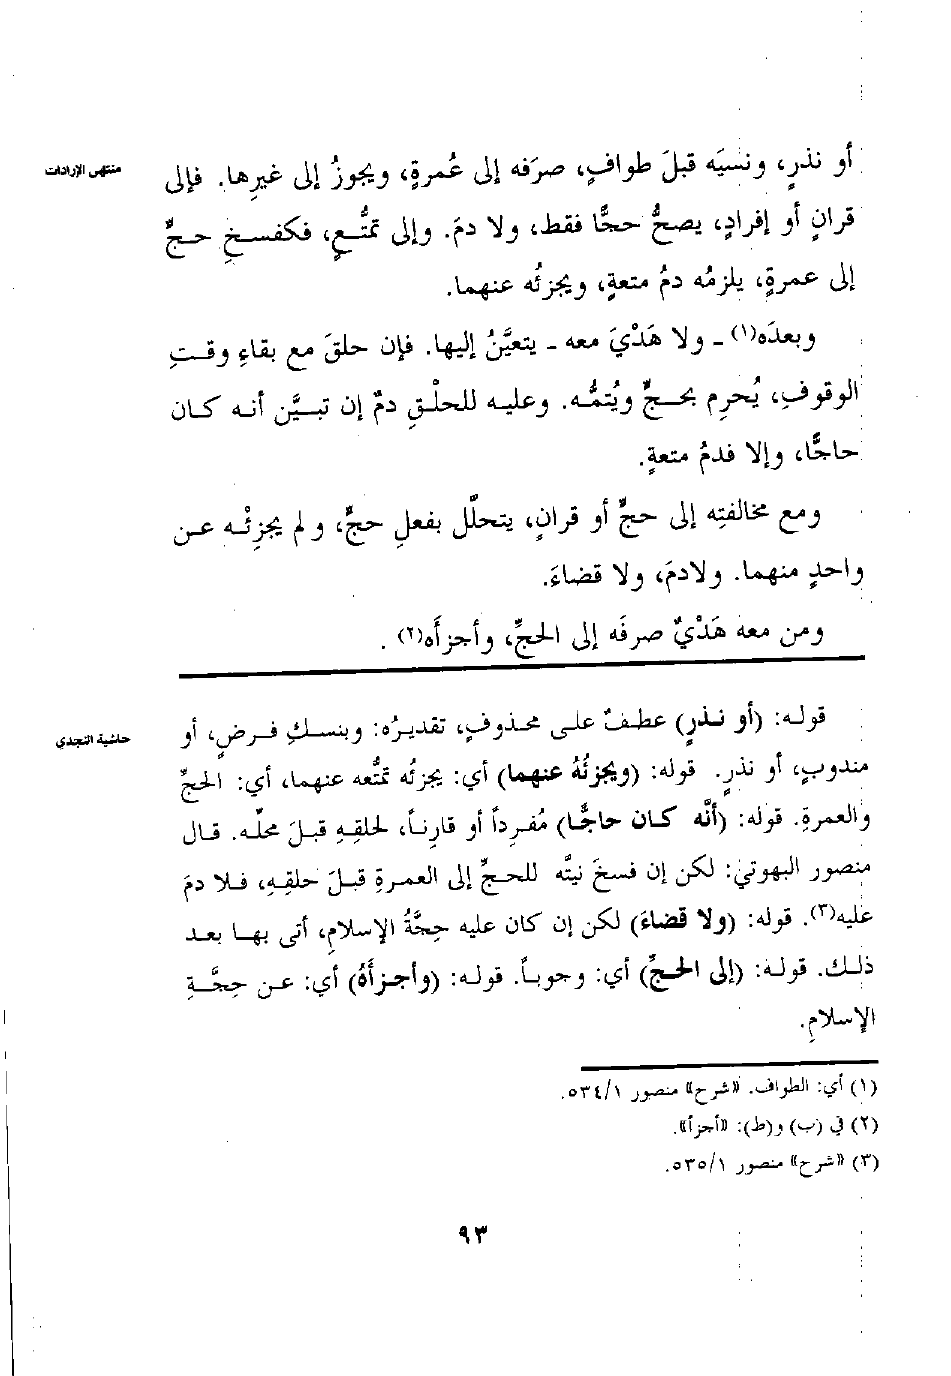 منتهى الإرادات
أو نذرٍ، ونسيَه قبلَ طوافٍ، صرَفه إلى عُمرةٍ، ويجوزُ إلى غيرِها. فإلى
قرانٍ أو إفرادٍ، يصحُّ حجًّا فقط، ولا دمَ. وإلى تمتُّعٍ، فكفسخِ حجٍّ
إلى عمرةٍ، يلزمُه دمُ متعةٍ، ويجزئُه عنهما.
وبعدَه(١) ـ ولا هَدْيَ معه ـ يتعيَّنُ إليها. فإن حلقَ مع بقاءِ وقتِ
الوقوفِ، يُحرِم بحجٍّ ويُتمُّه. وعليه للحلْقِ دمٌ إن تبيَّن أنه كان
حاجًّا، وإلا فدمُ متعةٍ.
ومع مخالفتِه إلى حجٍّ أو قرانٍ، يتحلَّل بفعلِ حجٍّ، ولم يجزِئْه عن
واحدٍ منهما. ولادمَ، ولا قضاءَ.
ومن معه هَدْيٌ صرفَه إلى الحجِّ، وأجزأَه(٢).
حاشية النجدي
قوله: (أو نذرٍ) عطفٌ على محذوفٍ، تقديرُه: وبنسكِ فرضٍ، أو
مندوبٍ، أو نذرٍ. قوله: (ويجزئُهُ عنهما) أي: يجزئُه تمتُّعه عنهما، أي: الحجِّ
والعمرةِ. قوله: (أنَّه كان حاجًّا) مُفرِداً أو قارِناً، لحلقِهِ قبلَ محلِّه. قال
منصور البهوتي: لكن إن فسخَ نيتَّه للحجِّ إلى العمرةِ قبلَ حلقِهِ، فلا دمَ
عليه(٣). قوله: (ولا قضاءَ) لكن إن كان عليه حِجَّةُ الإسلامِ، أتى بها بعد
ذلك. قوله: (إلى الحجِّ) أي: وجوباً. قوله: (وأجزأَهُ) أي: عن حِجَّةِ
الإسلامِ.
(١) أي: الطواف. «شرح» منصور ٥٣٤/١.
(٢) في (ب) و(ط): «أجزأ».
(٣) «شرح» منصور ٥٣٥/١.
٩٣